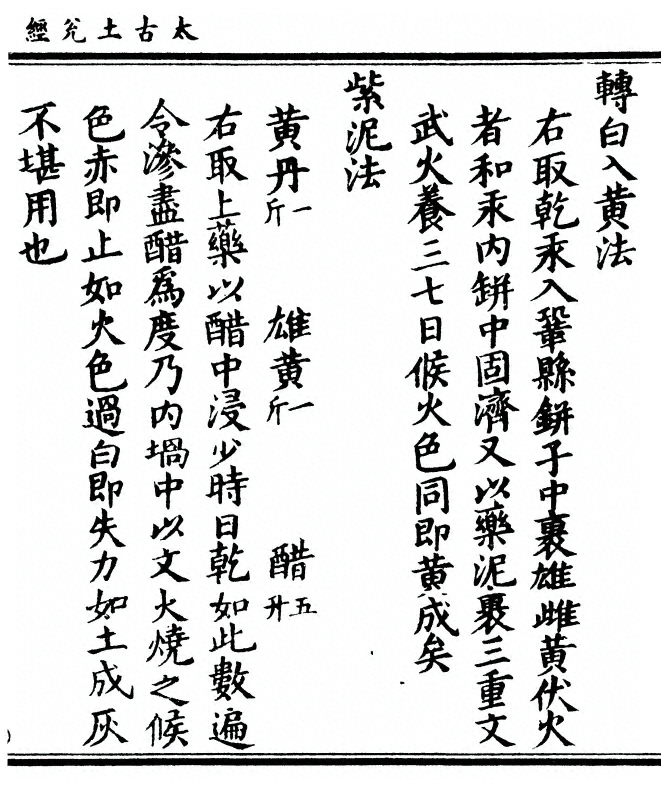 太古土兊經
轉白入黃法
右取乾汞入鞏縣缾子中裹雄雌黃伏火
者和汞內缾中固濟又以藥泥裹三重文
武火養三七日候火色同即黃成矣
紫泥法
黃丹一斤 雄黃一斤 醋五升
右取上藥以醋中浸少時日乾如此數遍
令滲盡醋為度乃內堝中以文火燒之候
色赤即止如火色過白即失力如土成灰
不堪用也